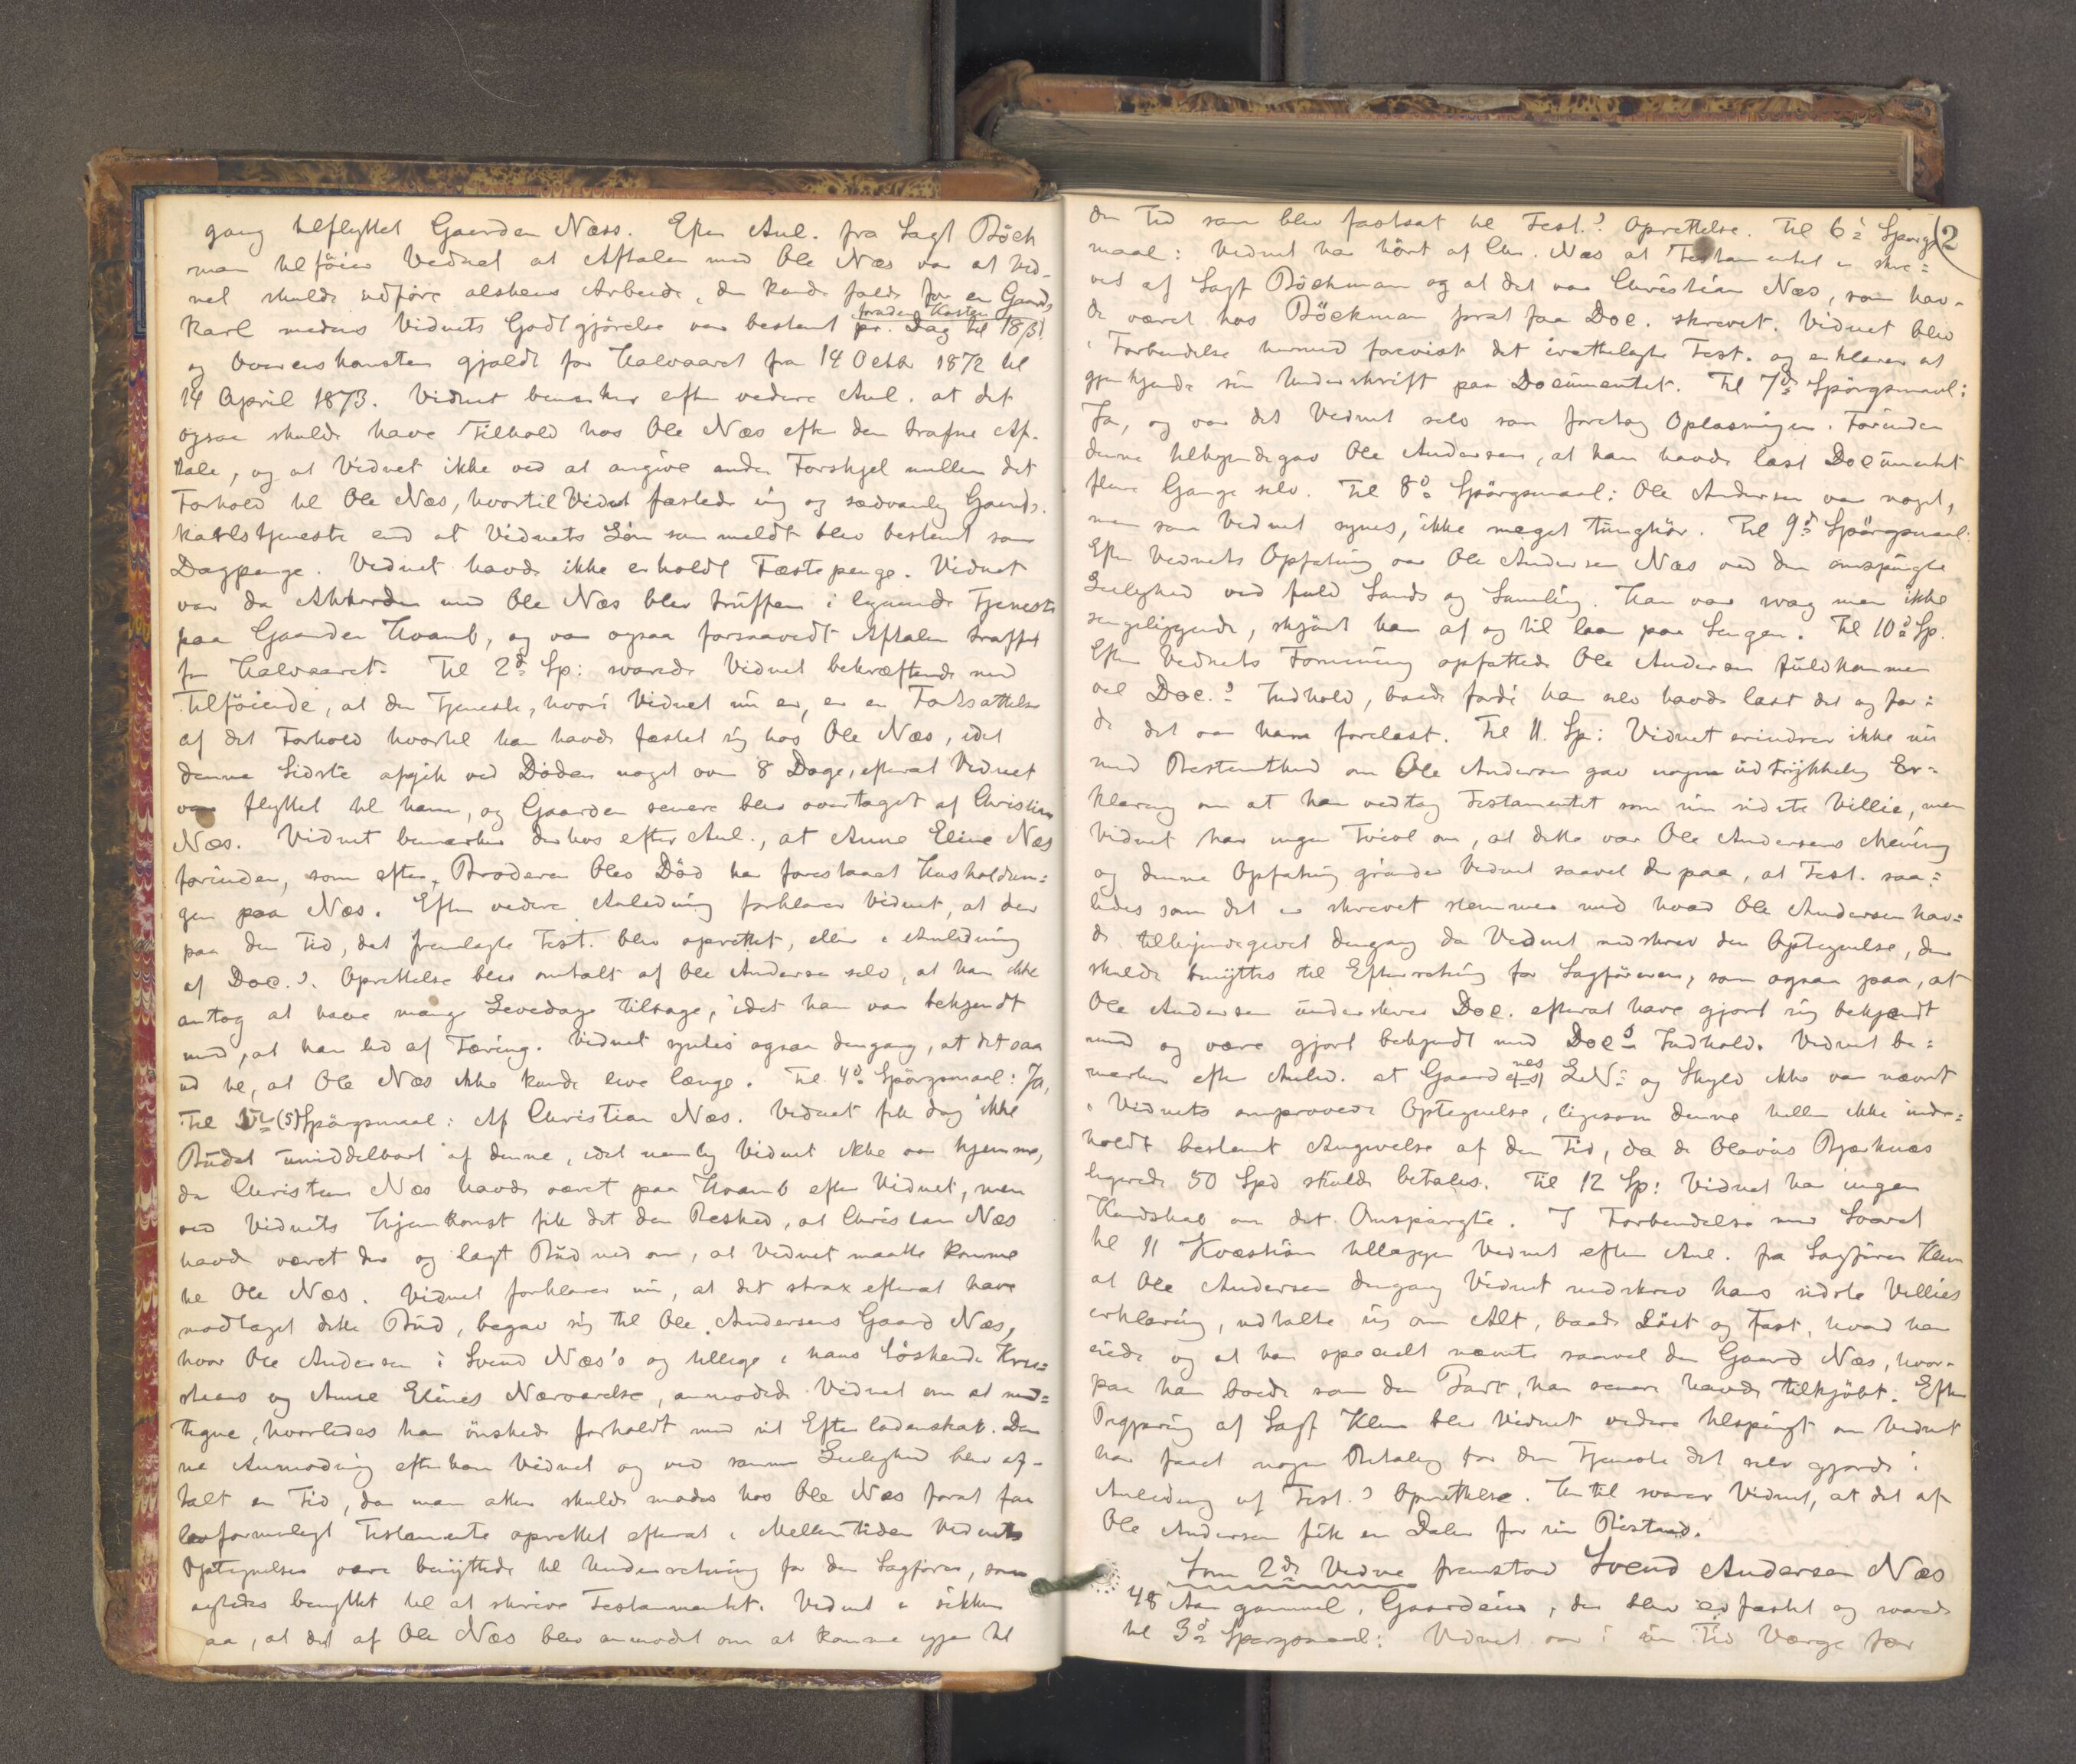 gang tilflyttet Gaarden Næss. Efter Anl. fra Sagf Böck
man tilföier Vidnet at Aftalen med Ole Næs var at Vid-
net skulde udföre alskens Arbeide, der kunde falde for en Gaards
foruden Kosten
karl medens Vidnets Godtgjörelse var bestemt pr. Dag til 18 ß
og Overenskomsten gjaldt for Halvaaret fra 14 Octbr 1872 til
14 April 1873. Vidnet bemærker efter videre Anl. at det
ogsaa skulde have Tilhold hos Ole Næs efter den trufne Af-
tale, og at Vidnet ikke ved at angive anden Forskjel mellem det
Forhold til Ole Næs, hvortil Vidnet fæstede sig og sædvanlig Gaards-
karlstjeneste end at Vidnets Lön som meldt blev bestemt som
Dagpenge. Vidnet havde ikke erholdt Fæstepenge. Vidnet
var da Akkorden med Ole Næs blev truffen i lignende Tjeneste
paa Gaarden Hvamb, og var ogsaa forsaavidt Aftalen truffet
for Halvaaret. Til 2d Sp: svarede Vidnet bekræftende med
Tilföiende, at den Tjeneste, hvori Vidnet nu er, er en Fortsættelse
af det Forhold hvortil han havde fæstet sig hos Ole Næs, idet
denne Sidste afgik ved Döden noget over 8 Dage, efterat Vidnet
var flyttet til ham, og Gaarden senere blev overtaget af Christian
Næs. Vidnet bemærker derhos efter Anl., at Anne Eline Næs
forinden, som efter Broderen Oles Död har forestaaet Husholdnin=
gen paa Næs. Efter videre Anledning forklarer Vidnet, at der
paa den Tid, det fremlagte Test. blev oprettet, eller i Anledning
af Doc.s Oprettelse blev omtalt af Ole Andersen selv, at han ikke
antog at have mange Levedage tilbage, idet han var bekjendt
med, at han led af Tæring. Vidnet syntes ogsaa dengang, at det saa
ud til, at Ole Næs ikke kunde leve længe. Til 4de Spörgsmaal: Ja,
Til (5) Spörgsmaal: Af Christian Næs. Vidnet fik dog ikke
Budet umiddelbart af denne, idet nemlig Vidnet ikke var hjemme,
da Christian Næs havde været paa Hvamb efter Vidnet, men
ved Vidnets Hjemkomst fik det den Besked, at Christian Næs
havde været der og lagt Bud ned om, at Vidnet maatte komme
til Ole Næs. Vidnet forklarer nu, at det strax efterat have
modtaget dette Bud, begav sig til Ole Andersens Gaard Næs,
hvor Ole Andersen i Svend Næs's og tillige i hans Söskende Kri=
stians og Anne Elines Nærværelse, anmodede Vidnet om at ned=
tegne, hvorledes han önskede forholdt med sit Efterladenskab. Den
ne Anmodning efterkom Vidnet og ved samme Leilighed blev af-
talt en Tid, da man atter skulde mödes hos Ole Næs forat faa
lovformeligt Testamente oprettet efterat i Mellemtiden Vidnets
Optegnelser være benyttede til Underretning for den Sagförer, som
agtedes benyttet til at skrive Testamentet. Vidnet er sikker
paa, at det af Ole Næs blev anmodet om at komme igjen til
(2
den Tid som blev fastsat til Test.s Oprettelse. Til 6te Spörgs
maal: Vidnet har hört af Chr. Næs at Testamentet er skre=
vet af Sagf Böckman og at det var Christian Næs, som hav-
de været hos Böckman forat faa Doc. skrevet. Vidnet blev
i Forbindelse hermed forevist det irettelagte Test. og erklærer at
gjenkjende sin Underskrift paa Documentet. Til 7de Spörgsmaal:
Ja, og var det Vidnet selv som foretog Oplæsningen. Forinden
denne tilkjendegav Ole Andersen, at han havde læst Documentet
flere Gange selv. Til 8de Spörgsmaal: Ole Andersen var noget,
men som Vidnet synes, ikke meget tunghör. Til 9de Spörgsmaal:
Efter Vidnets Opfatning var Ole Andersen Næs ved den omspurgte
Leilighed ved fuld Sands og Samling. Han var svag men ikke
sengeliggende, skjönt han af og til laa paa Sengen. Til 10de Sp.
Efter Vidnets Formening opfattede Ole Andersen fuldkommen
vel Doc.s Indhold, baade fordi han selv havde læst det og for=
di det var ham forelæst. Til 11. Sp: Vidnet erindrer ikke nu
med Bestemthed om Ole Andersen gav nogen udtrykkelig Er=
klæring om at han vedtog Testamentet som sin sidste Villie, men
Vidnet har ingen Tvivl om, at dette var Ole Andersens Mening
og denne Opfatning grunder Vidnet saavel derpaa, at Test. saa=
ledes som det er skrevet stemmer med hvad Ole Andersen hav=
de tilkjendegivet dengang da Vidnet nedskrev den Optegnelse, der
skulde benyttes til Efterretning for Sagföreren, som ogsaa paa, at
Ole Andersen underskrev Doc. efterat have gjort sig bekjendt
med og være gjort bekjendt med Docs Indhold. Vidnet be=
mærker efter Anled. at Gaardenes LN: og Skyld ikke var nævnt
i Vidnets omprovede Optegnelse, ligesom denne heller ikke inde=
holdt bestemt Angivelse af den Tid, da de Olavus Bjerknæs
legerede 50 Spd skulde betales. Til 12 Sp: Vidnet har ingen
Kundskab om det Omspurgte. I Forbindelse med Svaret
til 11 Kvæstion tillægger Vidnet efter Anl. fra Sagförer Klem
at Ole Andersen dengang Vidnet nedskrev hans sidste Villies
erklæring, udtalte sig om Alt, baade Löst og Fast, hvad han
eiede og at han specielt nævnte saavel den Gaard Næs, hvor-
paa han boede som den Part, han senere havde tilkjöbt. Efter
Begjæring af Sagf Klem blev Vidnet videre tilspurgt om Vidnet
har faaet nogen Betaling for den Tjeneste det selv gjorde i
Anledning af Test.s Oprettelse. Hertil svarer Vidnet, at det af
Ole Andersen fik en Daler for sin Bistand.
Som 2det Vidne fremstod Svend Andersen Næs
48 Aar gammel, Gaardeier, der blev edfæstet og svarede
til 3de Spörgsmaal: Vidnet var i sin Tid Værge for